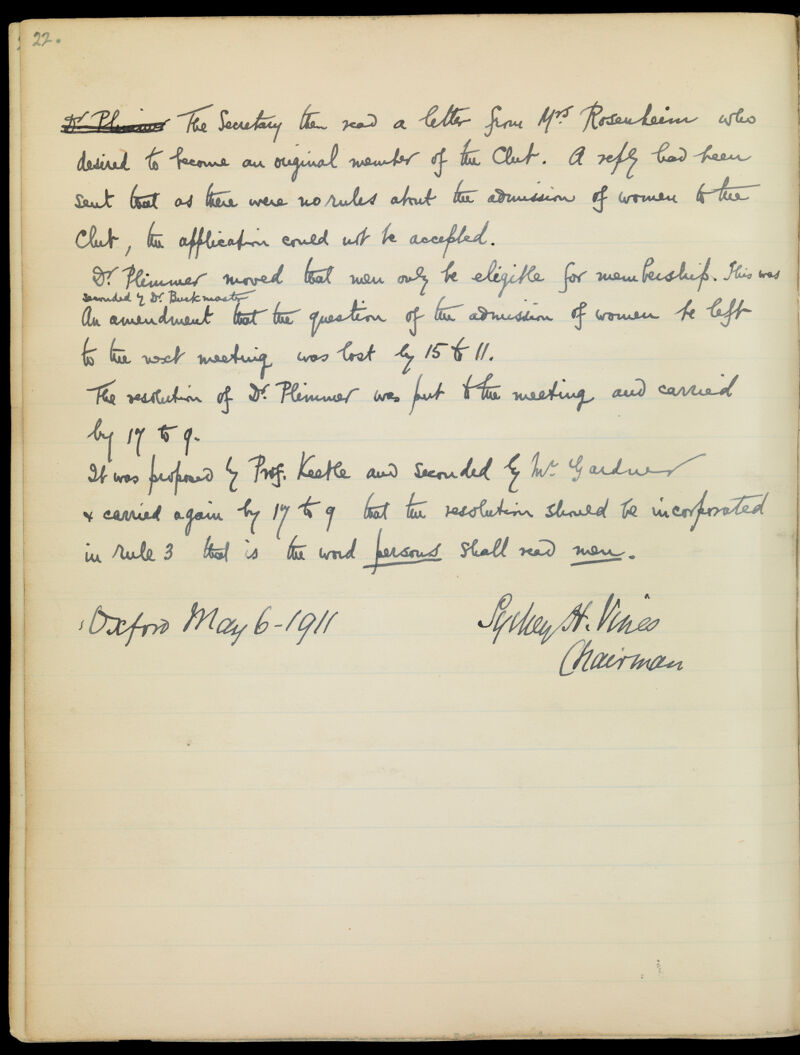 22.
Dr Plimmer The Secretary then read a letter from Mrs Rosenheim who
desired to become an original member of the Club. A reply had been
sent that as there were no rules about the admission of women to the
Club, the application could not be accepted.
Dr. Plimmer moved that men only be eligible for membership. This was
seconded by Dr Buckmaster
An amendment that the question of the admission of women be left
to the next meeting was lost by 15 to 11.
The resolution of Dr. Plimmer was put to the meeting and carried
by 17 to 9.
It was proposed by Prof. Keeble and seconded by Mr Gardner
& carried again by 17 to 9 that the resolution should be incorporated
in rule 3 that is the word persons shall read men.
Oxford May 6-1911
Sydney H. Vines
Chairman